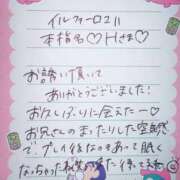 イルファーロ211
本指名♡Hさま♡
お誘い頂いて
ありがとうございました!
お久しぶりに会えたー♡
お兄さんのまったりした空気感
で、プレイ後なのもあって眠く
なっちゃった